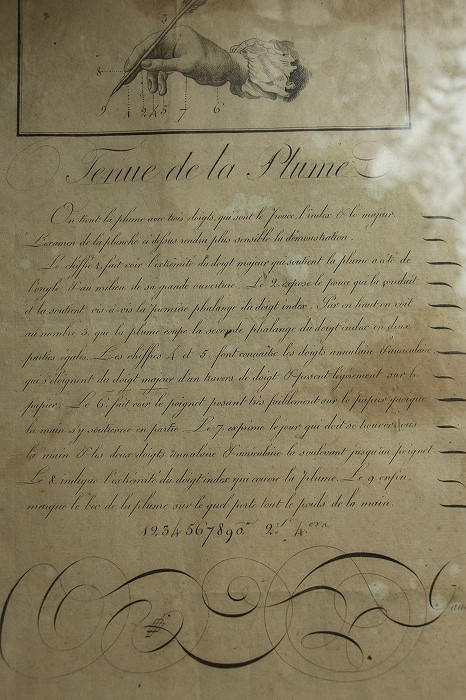 3
8
9 1 2 4 5 7 6
Tenue de la Plume
On tient la plume avec trois doigts, qui sont le Pouce, l'index & le majeur.
L'examen de la planche ci dessus rendra plus sensible la démonstration.
Le chiffre 1, fait voir l'extrémité du doigt majeur qui soutient la plume à côté de
l'ongle & au milieu de sa grande ouverture. Le 2. expose le pouce qui la conduit
& la soutient vis-à-vis la première phalange du doigt index. Par en haut on voit
au nombre 3, que la plume coupe la seconde phalange du doigt index en deux
parties égales. Les chiffres 4 et 5 font connaître les doigts annulaire & auriculaire,
que s'éloignent du doigt majeur d'un travers de doigt & posent légèrement sur le
papier. Le 6. fait voir le poignet posant très faiblement sur le papier quoique
la main s'y soutienne en partie. Le 7. exprime le jour qui doit se trouver sous
la main & les deux doigts annulaire & auriculaire la soulevant jusqu'au poignet.
Le 8. indique l'extrémité du doigt index qui couvre la plume. Le 9. enfin
marque le bec de la plume sur le quel porte tout le poids de la main.
1234567890